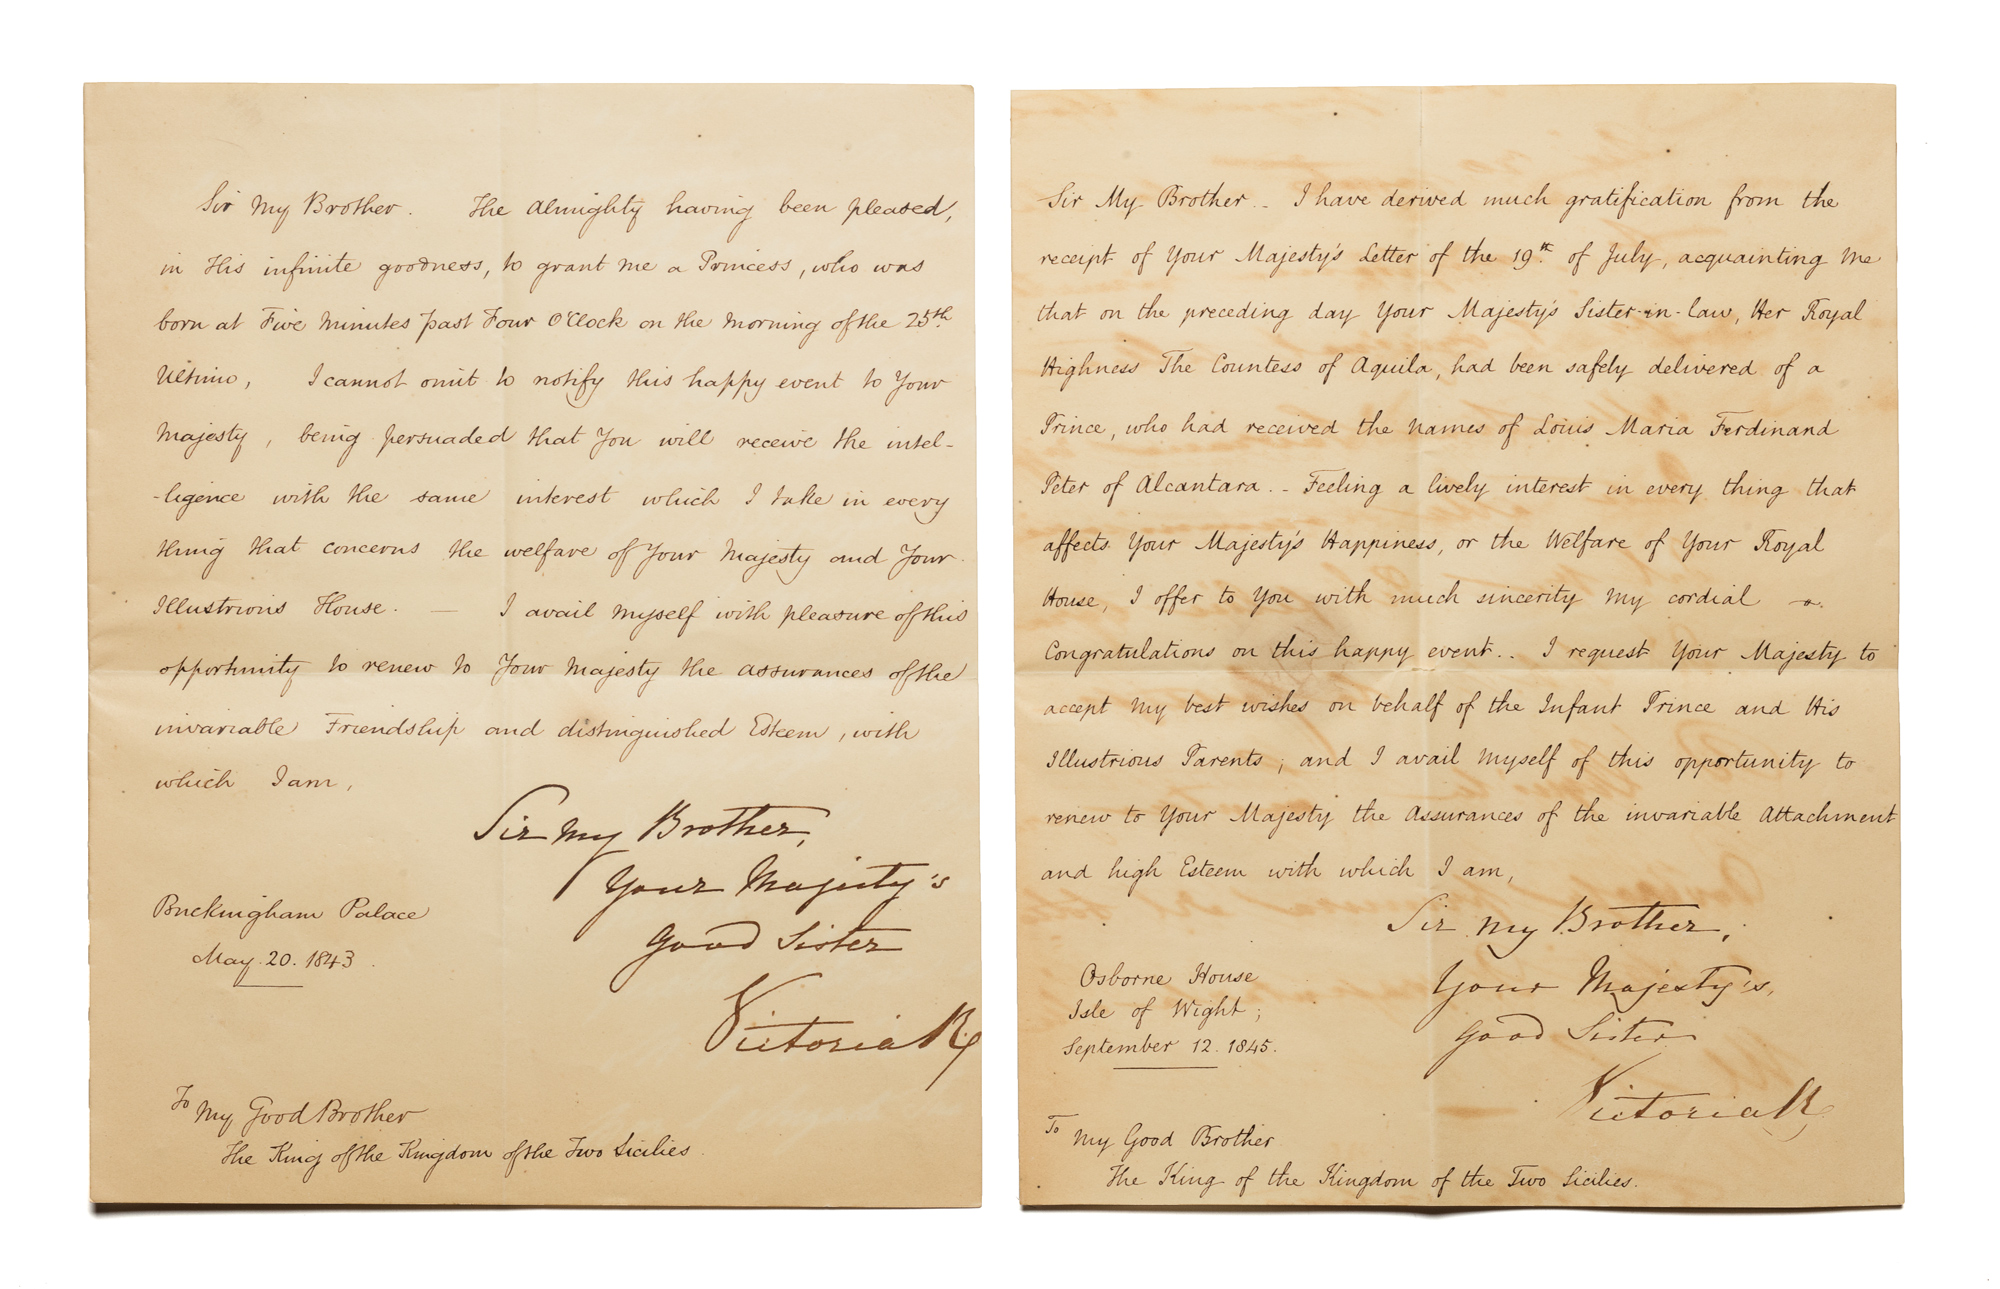 Sir My Brother. The Almighty having been pleased,
in His infinite goodness, to grant me a Princess, who was
born at Five Minutes past Four O'Clock on the Morning of the 25th
Ultimo, I cannot omit to notify this happy event to Your
Majesty, being persuaded that You will receive the intel-
-ligence with the same interest which I take in every
thing that concerns the welfare of Your Majesty and Your
Illustrious House. — I avail myself with pleasure of this
opportunity to renew to Your Majesty the assurances of the
invariable Friendship and distinguished Esteem, with
which I am,
Sir My Brother,
Your Majesty's
Good Sister
Victoria R
Buckingham Palace
May. 20. 1843.
To My Good Brother
The King of the Kingdom of the Two Sicilies.
Sir My Brother.. I have derived much gratification from the
receipt of Your Majesty's Letter of the 19th. of July, acquainting Me
that on the preceding day Your Majesty's Sister-in-law, Her Royal
Highness The Countess of Aquila, had been safely delivered of a
Prince, who had received the names of Louis Maria Ferdinand
Peter of Alcantara. - Feeling a lively interest in every thing that
affects Your Majesty's Happiness, or the Welfare of Your Royal
House, I offer to You with much sincerity My cordial
Congratulations on this happy event.. I request Your Majesty to
accept My best wishes on behalf of the Infant Prince and His
Illustrious Parents; and I avail Myself of this opportunity to
renew to Your Majesty the Assurances of the invariable Attachment
and high Esteem with which I am,
Sir My Brother,
Your Majesty's,
Good Sister
Victoria R
Osborne House
Isle of Wight;
September 12. 1845.
To My Good Brother
The King of the Kingdom of the Two Sicilies.